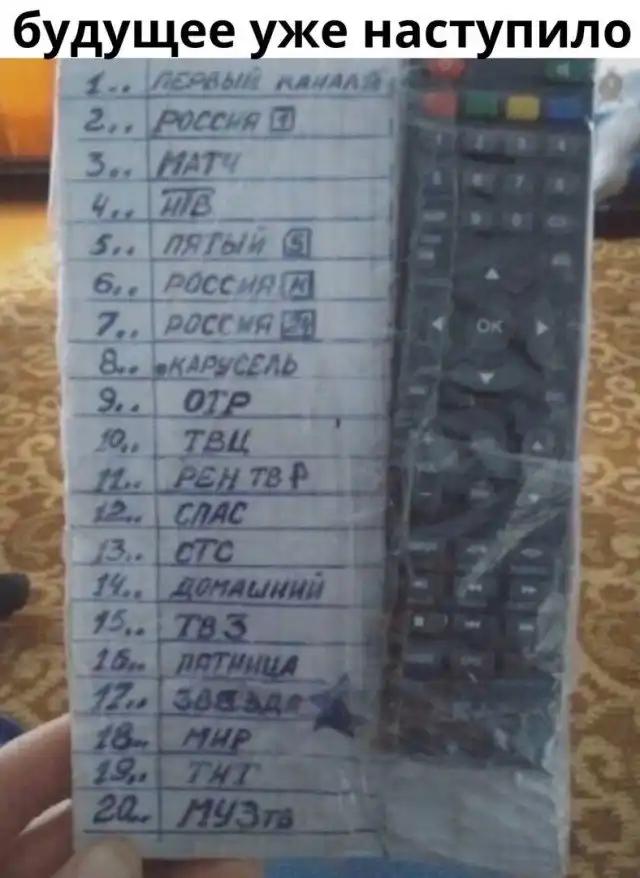 будущее уже наступило
1.. ПЕРВЫЙ КАНАЛ
2.. РОССИЯ 1
3.. МАТЧ
4.. НТВ
5.. ПЯТЫЙ 5
6.. РОССИЯ К
7.. РОССИЯ 24
8.. КАРУСЕЛЬ
9.. ОТР
10.. ТВЦ
11.. РЕН ТВ
12.. СПАС
13.. СТС
14.. ДОМАШНИЙ
15.. ТВ3
16.. ПЯТНИЦА
17.. ЗВЕЗДА
18.. МИР
19.. ТНТ
20.. МУЗтв
1 2 3 4
5 6 7 8
9 0
OK